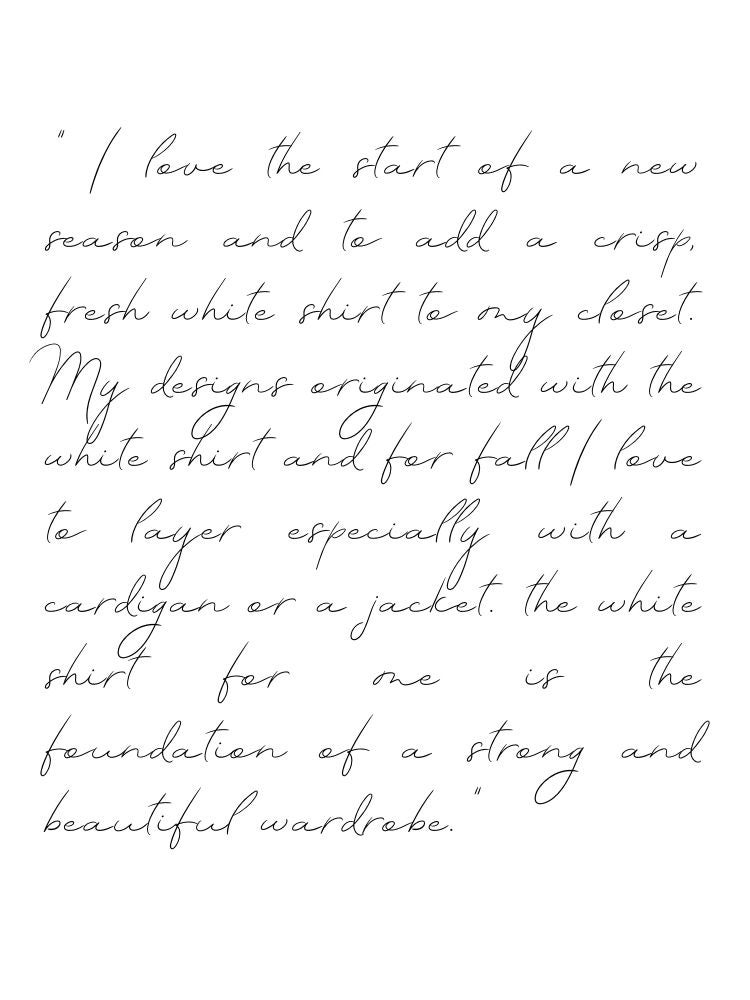 " I love the start of a new
season and to add a crisp,
fresh white shirt to my closet.
My designs originated with the
white shirt and for fall I love
to layer especially with a
cardigan or a jacket. the white
shirt for me is the
foundation of a strong and
beautiful wardrobe. "